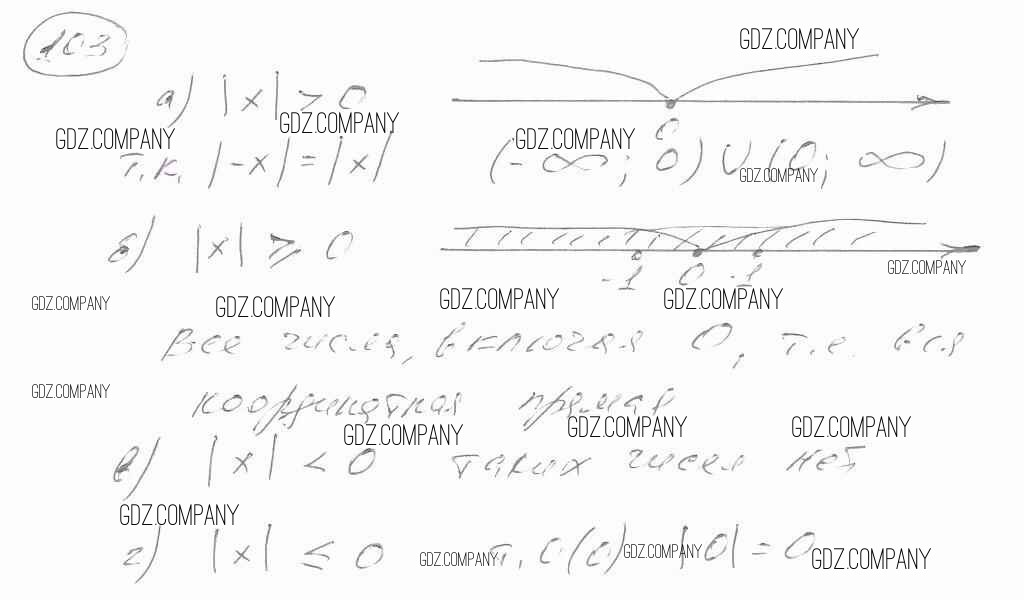 103
GDZ.COMPANY
а) |x| > 0
GDZ.COMPANY GDZ.COMPANY GDZ.COMPANY
0
т.к. |-x| = |x| (-∞; 0) ∪ (0; ∞)
GDZ.COMPANY
б) |x| ⩾ 0
-1 0 1
GDZ.COMPANY
GDZ.COMPANY GDZ.COMPANY GDZ.COMPANY GDZ.COMPANY
Все числа, включая 0, т.е. вся
GDZ.COMPANY
координатная прямая
GDZ.COMPANY GDZ.COMPANY GDZ.COMPANY
в) |x| < 0 таких чисел нет
GDZ.COMPANY
г) |x| ≤ 0 т. 0(0) |0| = 0
GDZ.COMPANY GDZ.COMPANY GDZ.COMPANY